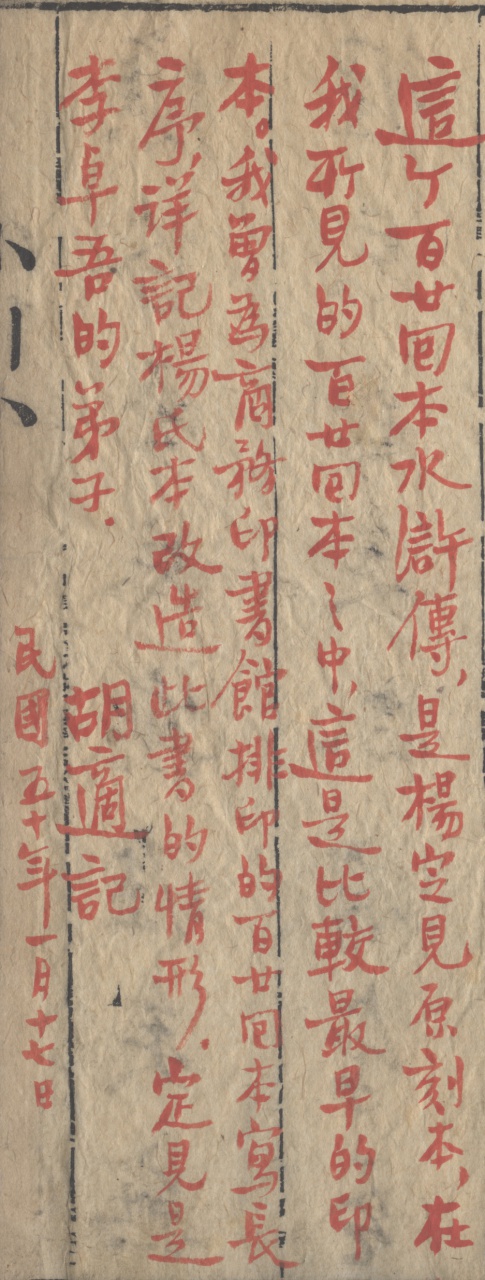 這个百廿囘本水滸傳,是楊定見原刻本,在
我所見的百廿囘本之中,這是比較最早的印
本。我曾為商務印書館排印的百廿囘本寫長
序,詳記楊氏本改造此書的情形.定見是
李卓吾的弟子.
胡適記
民國五十年一月十七日